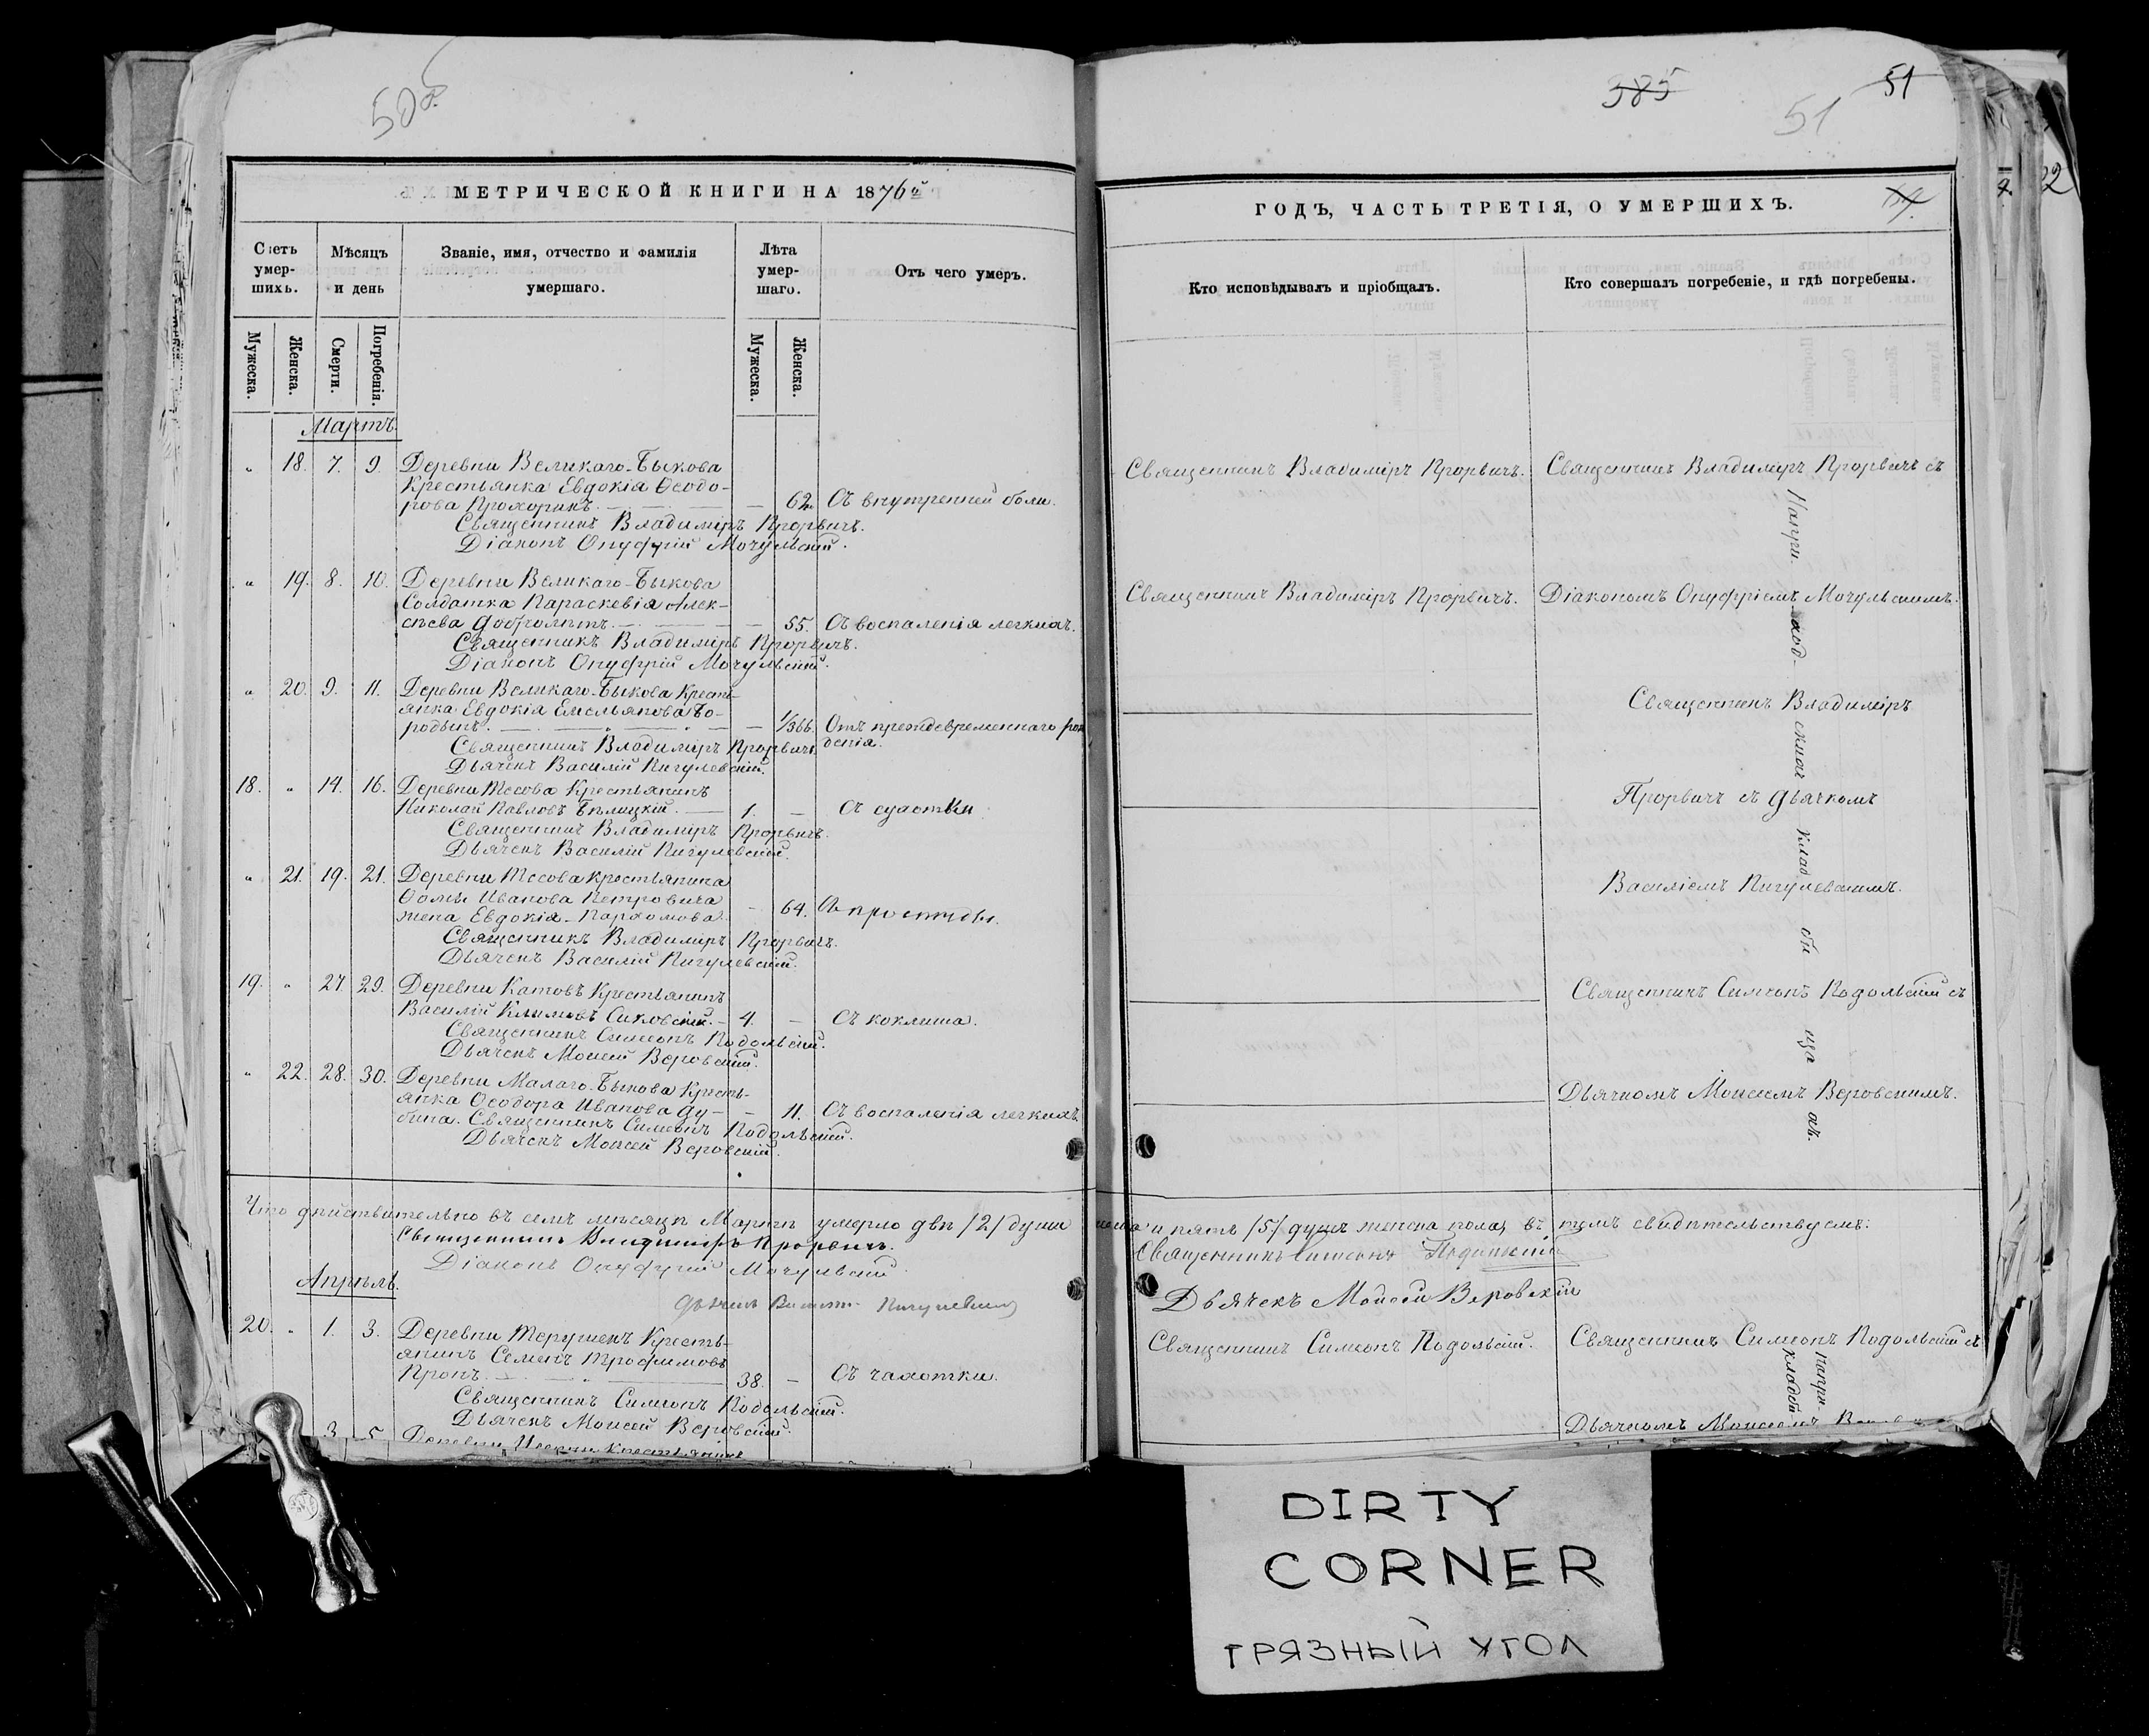 50 об.
МЕТРИЧЕСКОЙ КНИГИ НА 1876й
Счетъ умершихъ.
Мѣсяцъ и день
Званіе, имя, отчество и фамилія умершаго.
Лѣта умершаго.
Отъ чего умеръ.
Мужеска.
Женска.
Смерти.
Погребенія.
Мужеска.
Женска.
Мартъ.
" 18. 7. 9. Деревни Великаго-Быкова
Крестьянка Евдокія Ѳеодо-
рова Прохоринъ. — 62. Съ внутренней боли.
Священникъ Владиміръ Прорвичъ.
Діаконъ Онуфрій Мочульскій.
" 19. 8. 10. Деревни Великаго-Быкова
Солдатка Параскевія Алек-
сѣева — 55. Съ воспаленія легкихъ.
Священникъ Владиміръ Прорвичъ.
Діаконъ Онуфрій Мочульскій.
" 20. 9. 11. Деревни Великаго-Быкова Кресть-
янка Евдокія Емельянова Бо-
родынъ. — 1/366. Отъ преждевременнаго рож
денія.
Священникъ Владиміръ Прорвичъ.
Дьячекъ Василій Пигулевскій.
18. " 14. 16. Деревни Тесова Крестьянинъ
Николай Павловъ Бѣлицкій. — 1. — Съ
Священникъ Владиміръ Прорвичъ.
Дьячекъ Василій Пигулевскій.
" 21. 19. 21. Деревни Тесова Крестьянина
Ѳомы Иванова Петровича
жена Евдокія Пархомова. - 64. Съ простуды.
Священникъ Владиміръ Прорвичъ.
Дьячекъ Василій Пигулевскій.
19. " 27. 29. Деревни Катовъ Крестьянинъ
Василій Климовъ Сиковскій. - 4. — Съ коклиша.
Священникъ Симеонъ Подольскій.
Дьячекъ Моисей Веровскій.
" 22. 28. 30. Деревни Малаго-Быкова Кресть-
янка Ѳеодора Иванова Ду- - 11. Съ воспаленія легкихъ.
бина. Священникъ Симеонъ Подольскій.
Дьячекъ Моисей Веровскій.
Что дѣйствительно въ семъ мѣсяцѣ Мартѣ умерло двѣ /2/ души
Священникъ Владиміръ Прорвичъ.
Діаконъ Онуфрій Мочульскій.
Дьячекъ Василій Пигулевскій
Апрѣль.
20. " 1. 3. Деревни Терушекъ Кресть-
янинъ Семенъ Трофимовъ
Пронъ. — 38. — Съ чахотки.
Священникъ Симеонъ Подольскій.
Дьячекъ Моисей Веровскій.
3 5 Деревни
385
51
51
ГОДЪ, ЧАСТЬ ТРЕТІЯ, О УМЕРШИХЪ.
Кто исповѣдывалъ и пріобщалъ.
Кто совершалъ погребеніе, и гдѣ погребены.
Священникъ Владиміръ Прорвичъ. Священникъ Владиміръ Прорвичъ съ
Священникъ Владиміръ Прорвичъ. Діакономъ Онуфріемъ Мочульскимъ.
Священникъ Владиміръ
Прорвичъ съ Дьячкомъ
Василіемъ Пигулевскимъ.
Священникъ Симеонъ Подольскій съ
Дьячкомъ Моисеемъ Веровскимъ.
На при-
ход-
скихъ
клад
би
ща
ахъ.
и пять /5/ душъ женска пола, въ томъ свидѣтельствуемъ:
Священникъ Симеонъ Подольскій
Дьячекъ Моисей Веровскій
Священникъ Симеонъ Подольскій. Священникъ Симеонъ Подольскій съ
на при
кладби
Дьячкомъ Моисеемъ
22
DIRTY
CORNER
ГРЯЗНЫЙ УГОЛ